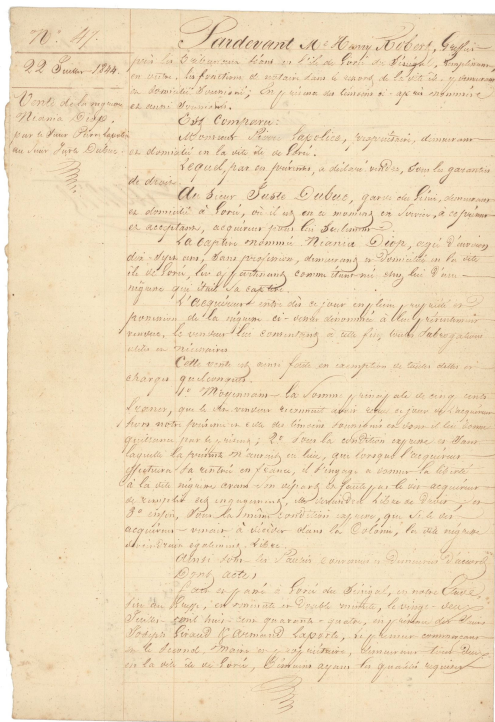 N.° 47.
22 Juillet 1844.
Vente de la négresse
Niania Diop,
par le Sieur Pierre Lapolice
au Sieur Juste Dubuc.
Pardevant M.e Henry Robert, Greffier
près le Tribunal séant en l'île de Gorée du Sénégal, remplissant
en cette les fonctions de notaire dans le ressort de la dite île, y demeurant
et domicilié soussigné; En présence des témoins ci-après nommés
et aussi soussignés.
Est Comparu:
Monsieur Pierre Lapolice, propriétaire, demeurant
et domicilié en la dite île de Gorée.
Lequel, par ces présentes, a déclaré vendre, sous la garantie
de droit.
Au Sieur Juste Dubuc, garde du Génie, demeurant
et domicilié à Gorée, où il est en ce moment en service, à ce présent
et acceptant, acquéreur pour lui
La captive nommée Niania Diop, agée d'environ
dix-sept ans, Sans profession, demeurant et Domiciliée en la dite
île de Gorée, lui appartenant comme étant née chez lui d'une
négresse qui était sa captive.
L'acquéreur entre dès ce jour en pleine propriété et
possession de la négresse ci-dessus dénommée
le vendeur lui consentant à cette fin, toutes subrogations
utiles et nécessaires.
Cette vente est ainsi faite en exemption de toutes dettes et
charges quelconques.
1° Moyennant la Somme principale de cinq cents
francs, que le Sr. vendeur reconnait avoir reçue ce jour de l'acquéreur
hors notre présence et celle des témoins soussignés et dont il lui donne
quittance par le présent; 2° sous la condition expresse et sans
laquelle la présente n'aurait eu lieu, que lorsque l'acquéreur
effectuera sa rentrée en France, il s'engage à donner la liberté
à la dite négresse avant son départ et faute par le dit acquéreur
de remplir cet engagement, elle deviendra libre de droit; et
3° enfin, sous la même condition expresse, que si le dit
acquéreur venait à décéder dans la Colonie, la dite négresse
deviendrait également libre.
Ainsi
Dont acte,
Fait et passé à Gorée du Sénégal, en notre Étude,
en minute en double minute, le vingt-deux
Juillet mil huit cent quarante-quatre, en présence des Sieurs
Joseph Giraud & Armand Laporte, le premier commerçant
et le second demeurant tous deux
en la dite île de Gorée, Témoins ayant les qualités requises